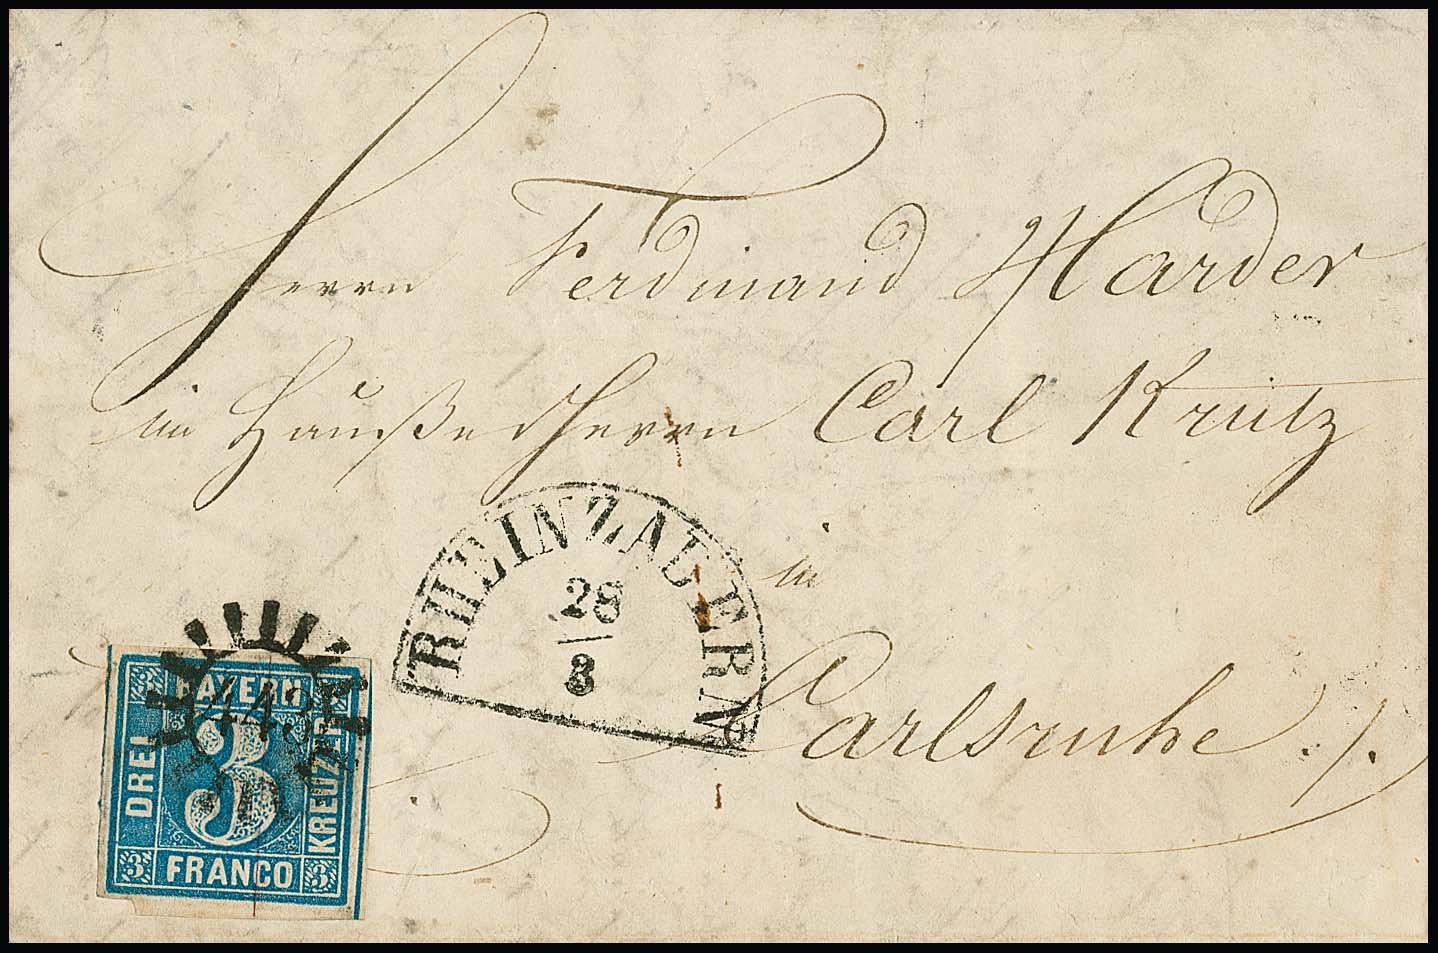 Herrn Ferdinand Harder
im Hauße d Herrn Carl Krutz
in
Carlsruhe ./.
RHEINZABERN
28
8
443
BAYERN
DREI
3
KREUZER
3 FRANCO 3